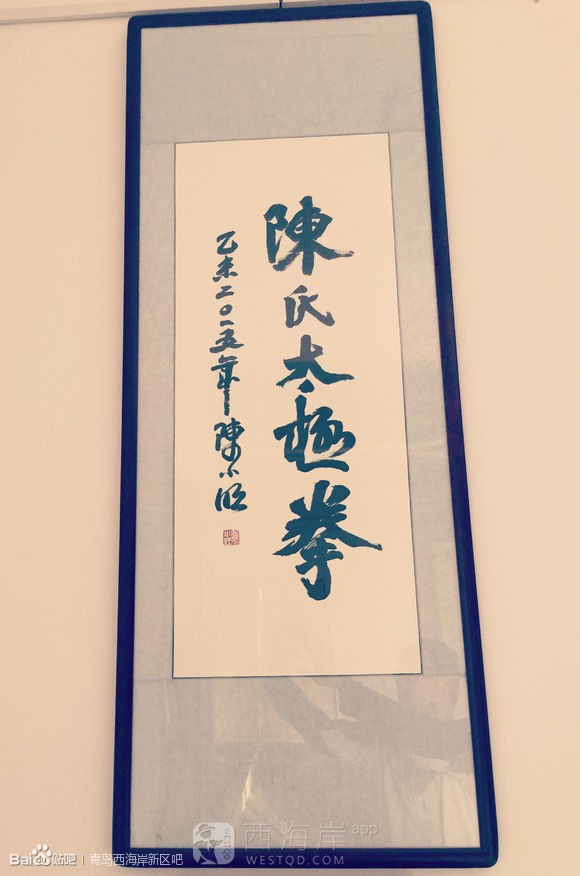 陳氏太極拳
乙未二〇一五年陳小旺
西海岸app
WESTQD.COM
Bai贴吧｜青岛西海岸新区吧